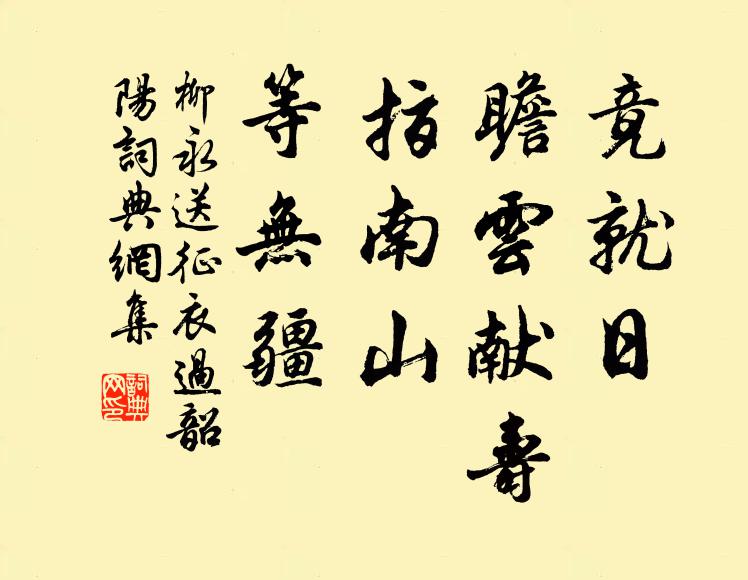 竟就日
瞻雲献壽
指南山
等無疆
柳永送征衣過韶
陽詞典網集
詞典
网印